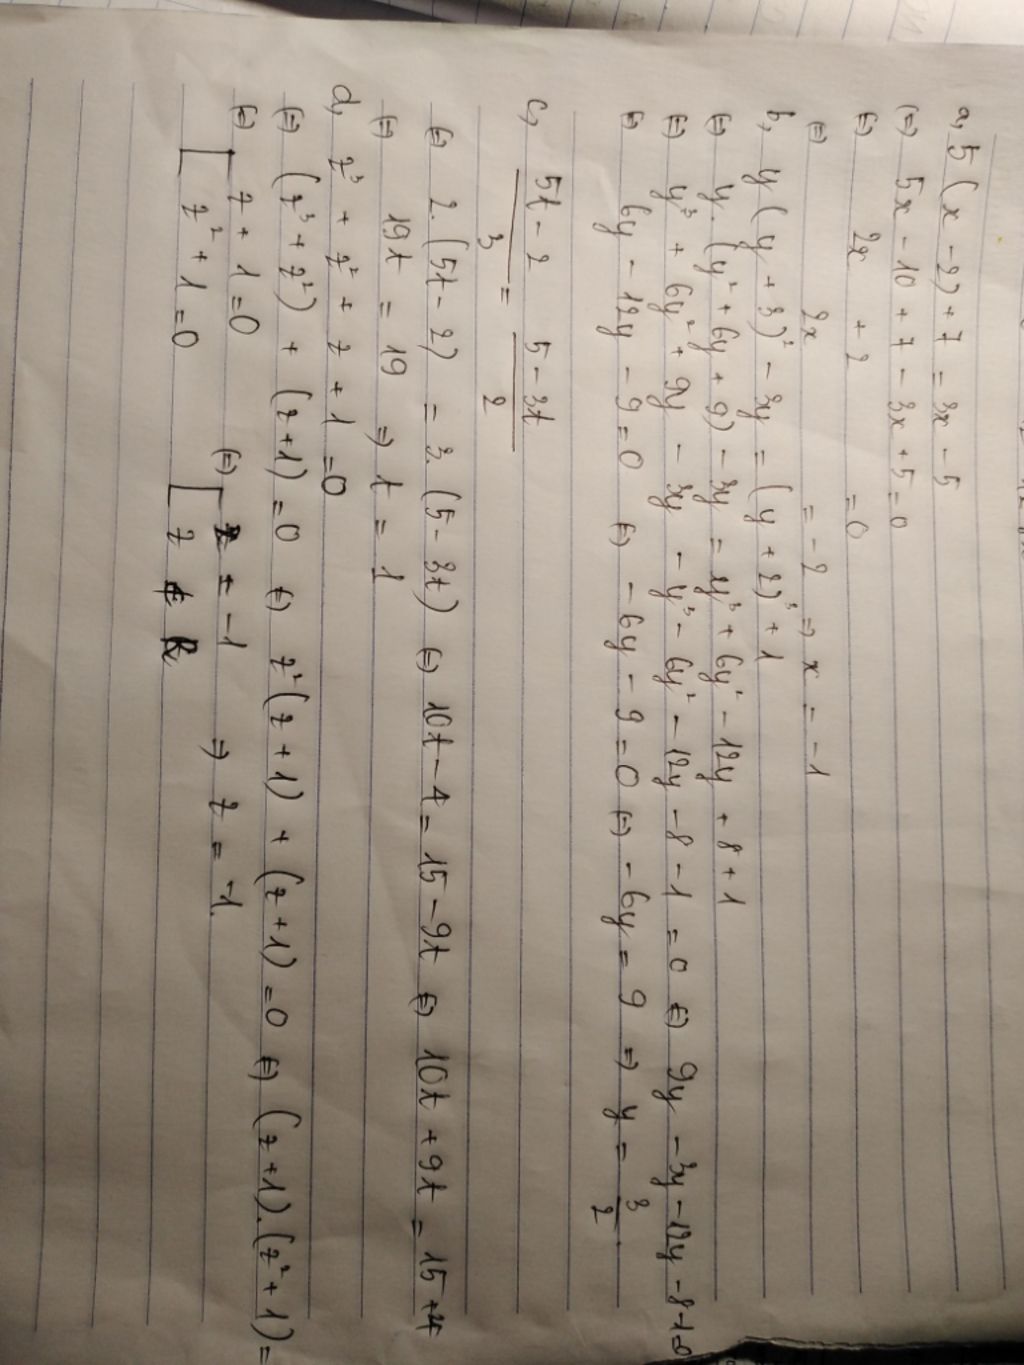 a, 5(x - 2) + 7 = 3x - 5
(=) 5x - 10 + 7 - 3x + 5 = 0
(=) 2x + 2 = 0
(=) 2x = -2 => x = -1
b, y(y + 3)² - 3y = (y + 2)³ + 1
(=) y.(y² + 6y + 9) - 3y = y³ + 6y² - 12y + 8 + 1
(=) y³ + 6y² + 9y - 3y - y³ - 6y² - 12y - 8 - 1 = 0 (=) 9y - 3y - 12y - 8 - 1 = 0
(=) 6y - 12y - 9 = 0 (=) - 6y - 9 = 0 (=) - 6y = 9 => y = 3/2.
c, (5t - 2)/3 = (5 - 3t)/2
(=) 2.(5t - 2) = 3.(5 - 3t) (=) 10t - 4 = 15 - 9t (=) 10t + 9t = 15 + 4
(=) 19t = 19 => t = 1
d, z³ + z² + z + 1 = 0
(=) (z³ + z²) + (z + 1) = 0 (=) z²(z + 1) + (z + 1) = 0 (=) (z + 1).(z² + 1) =
(=) [ z + 1 = 0 (=) [ z = -1 => z = -1.
z² + 1 = 0 z ∉ R